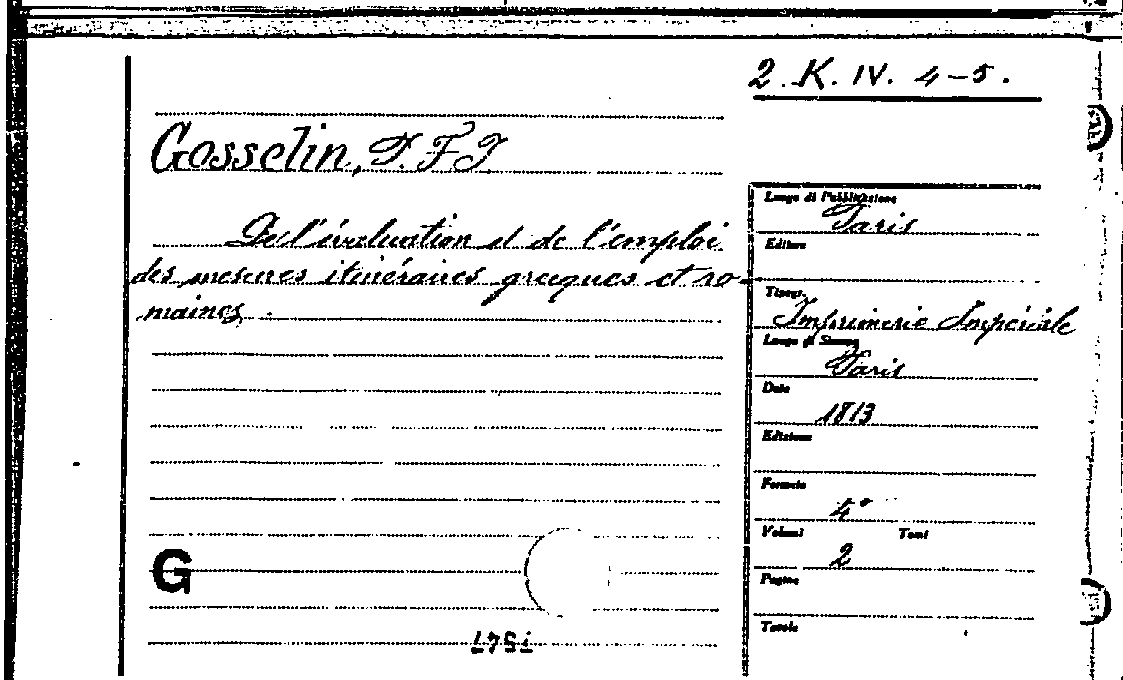 2. K. IV. 4-5.
Gosselin, P. F. J.
De l'évaluation et de l'emploi
des mesures itinéraires grecques et ro-
maines.
Luogo di Pubblicazione
Paris
Editore
Tipogr.
Imprimerie Impériale
Luogo di Stampa
Paris
Data
1813
Edizione
Formato
4°
Volumi Tomi
2
Pagine
Tavole
G